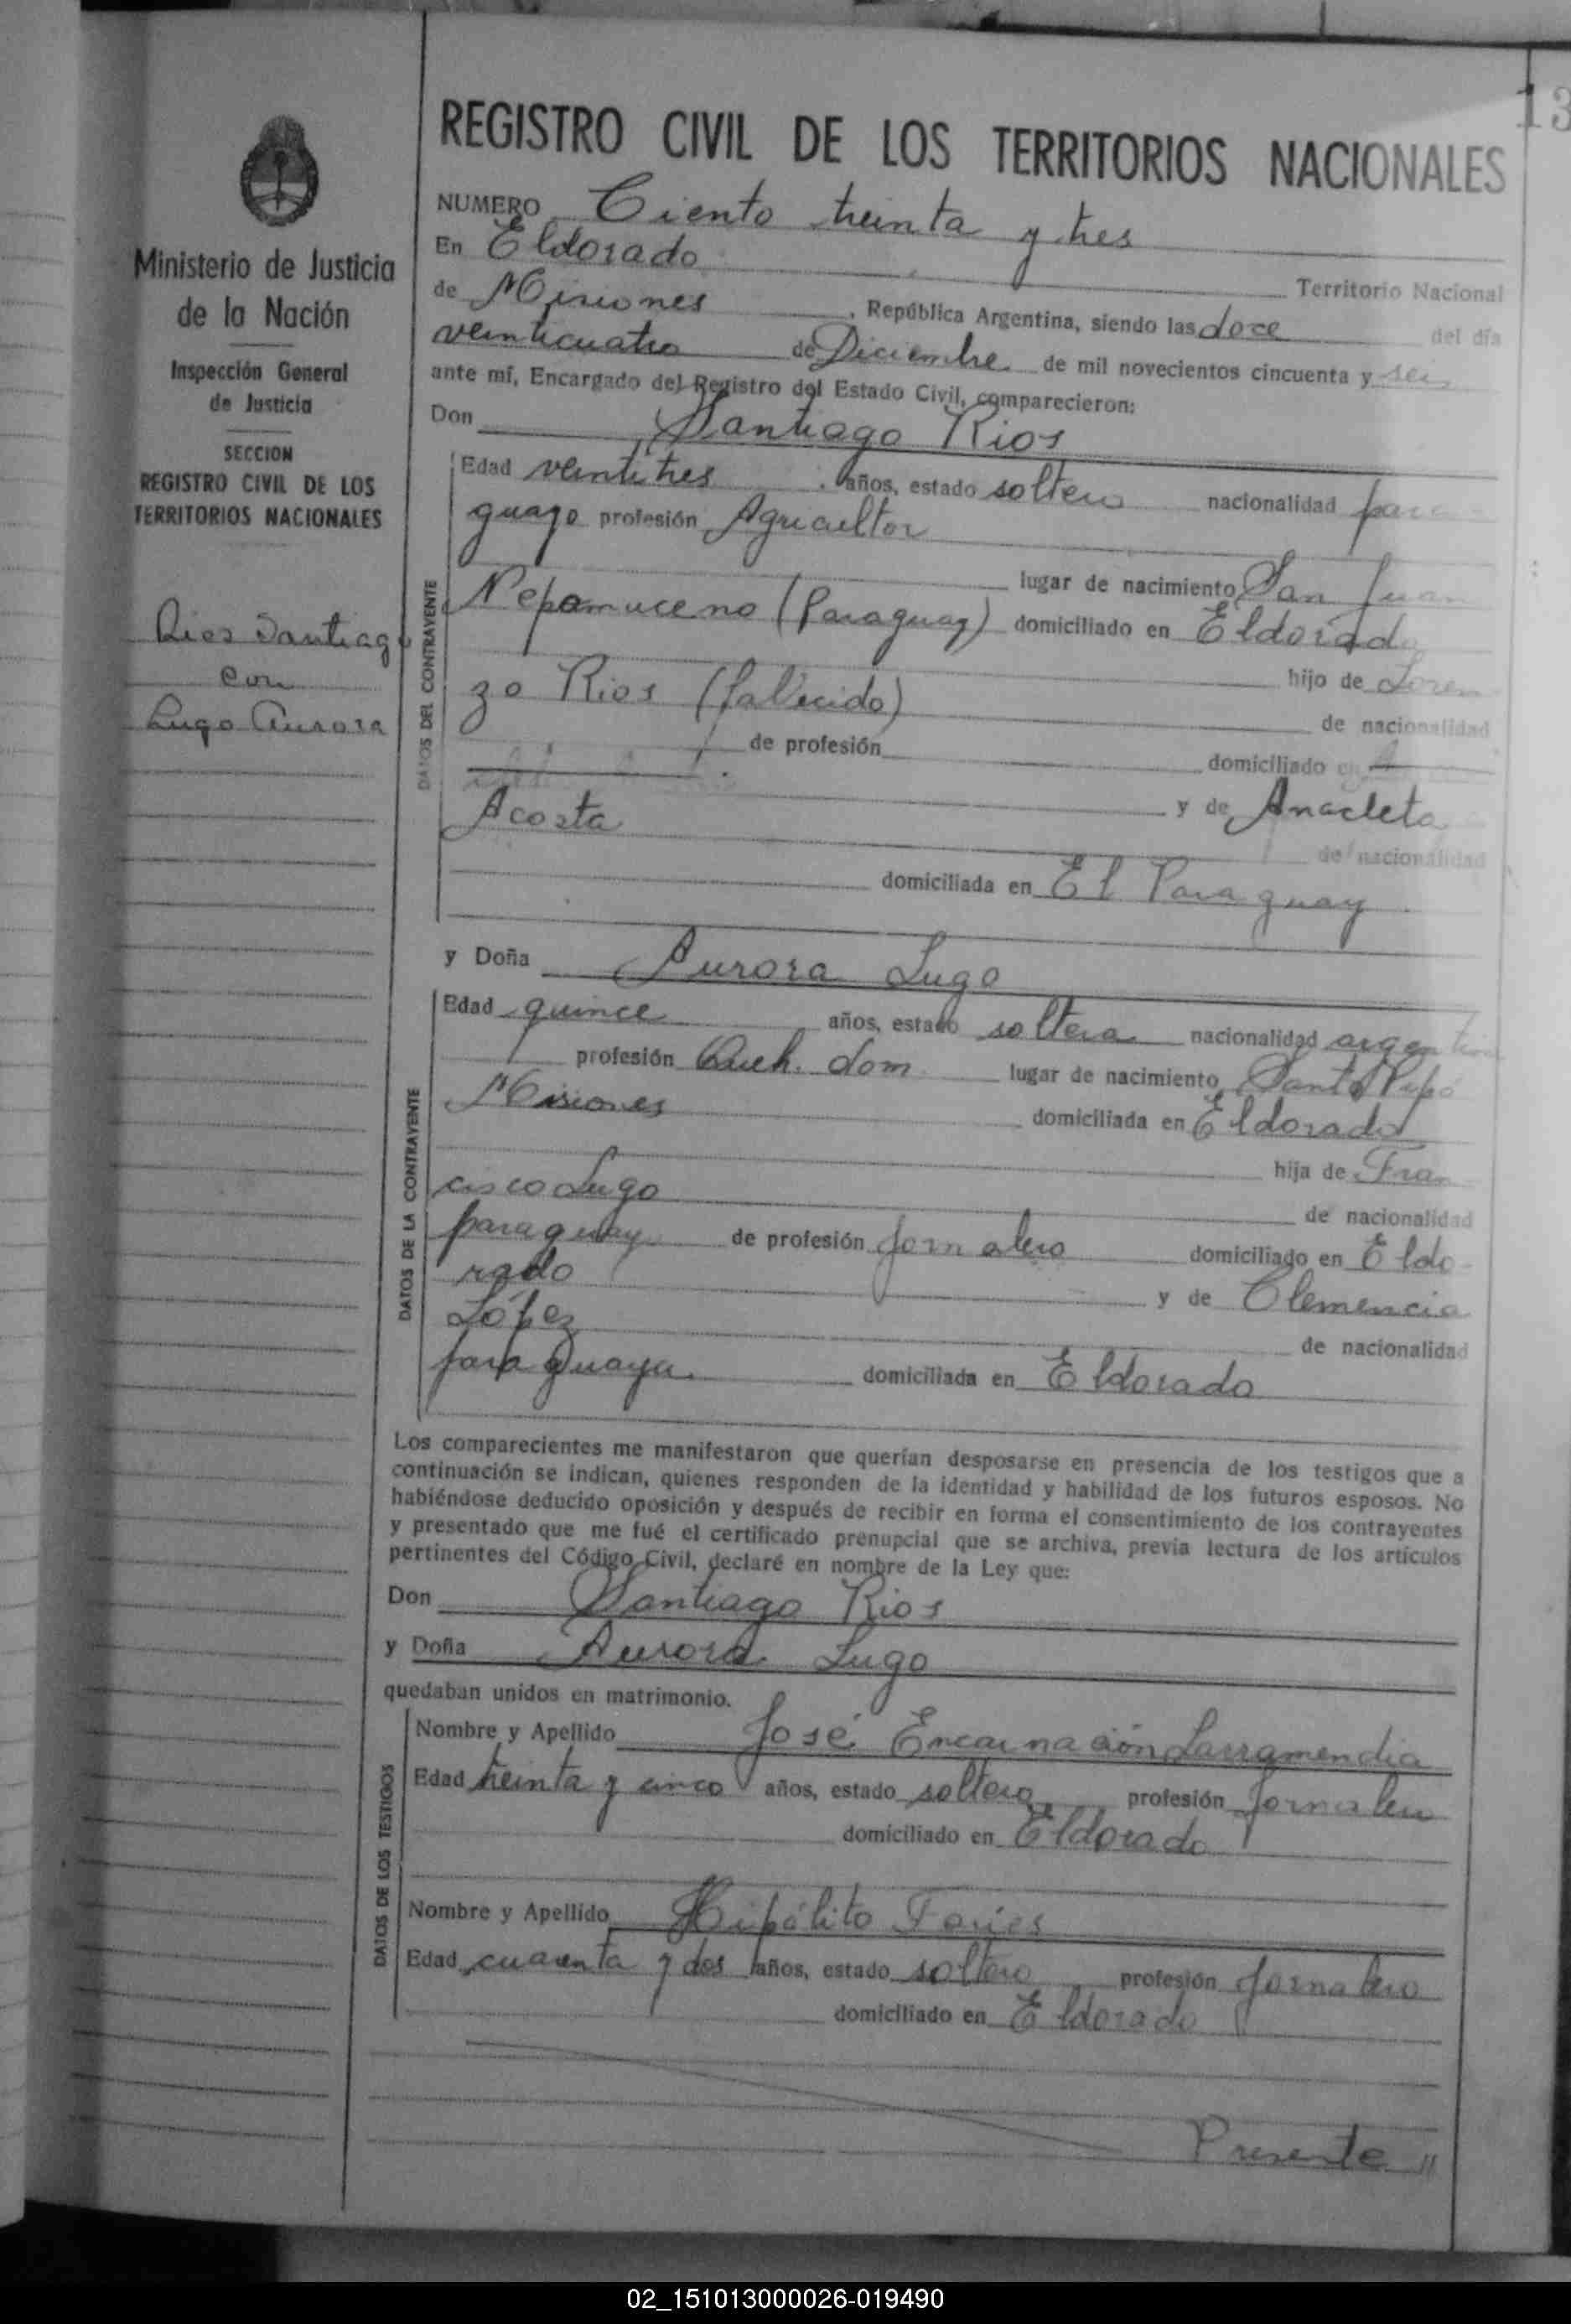 13
REGISTRO CIVIL DE LOS TERRITORIOS NACIONALES
Ministerio de Justicia
de la Nación
Inspección General
de Justicia
SECCION
REGISTRO CIVIL DE LOS
TERRITORIOS NACIONALES
Rios Santiago
con
Lugo Aurora
NUMERO Ciento treinta y tres
En Eldorado Territorio Nacional
de Misiones, República Argentina, siendo las doce del día
veinticuatro de Diciembre de mil novecientos cincuenta y seis
ante mí, Encargado del Registro del Estado Civil, comparecieron:
Don Santiago Rios
DATOS DEL CONTRAYENTE
Edad veintitres años, estado soltero nacionalidad para
guayo profesión Agricultor
lugar de nacimiento San Juan
Nepomuceno (Paraguay) domiciliado en Eldorado
hijo de Loren
zo Rios (fallecido)
de nacionalidad
de profesión domiciliado en
y de Anacleta
Acosta
de nacionalidad
domiciliada en El Paraguay
y Doña Aurora Lugo
DATOS DE LA CONTRAYENTE
Edad quince años, estado soltera nacionalidad argentina
profesión Queh. dom lugar de nacimiento Santo Pipó
Misiones domiciliada en Eldorado
hija de Fran
cisco Lugo
de nacionalidad
paraguay de profesión Jornalero domiciliado en Eldo-
rado
y de Clemencia
López
de nacionalidad
paraguaya domiciliada en Eldorado
Los comparecientes me manifestaron que querían desposarse en presencia de los testigos que a
continuación se indican, quienes responden de la identidad y habilidad de los futuros esposos. No
habiéndose deducido oposición y después de recibir en forma el consentimiento de los contrayentes
y presentado que me fué el certificado prenupcial que se archiva, previa lectura de los artículos
pertinentes del Código Civil, declaré en nombre de la Ley que:
Don Santiago Rios
y Doña Aurora Lugo
quedaban unidos en matrimonio.
DATOS DE LOS TESTIGOS
Nombre y Apellido José Encarnación Larramendia
Edad treinta y cinco años, estado soltero profesión Jornalero
domiciliado en Eldorado
Nombre y Apellido Hipólito
Edad cuarenta y dos años, estado soltero profesión Jornalero
domiciliado en Eldorado
Presente //
02_151013000026-019490